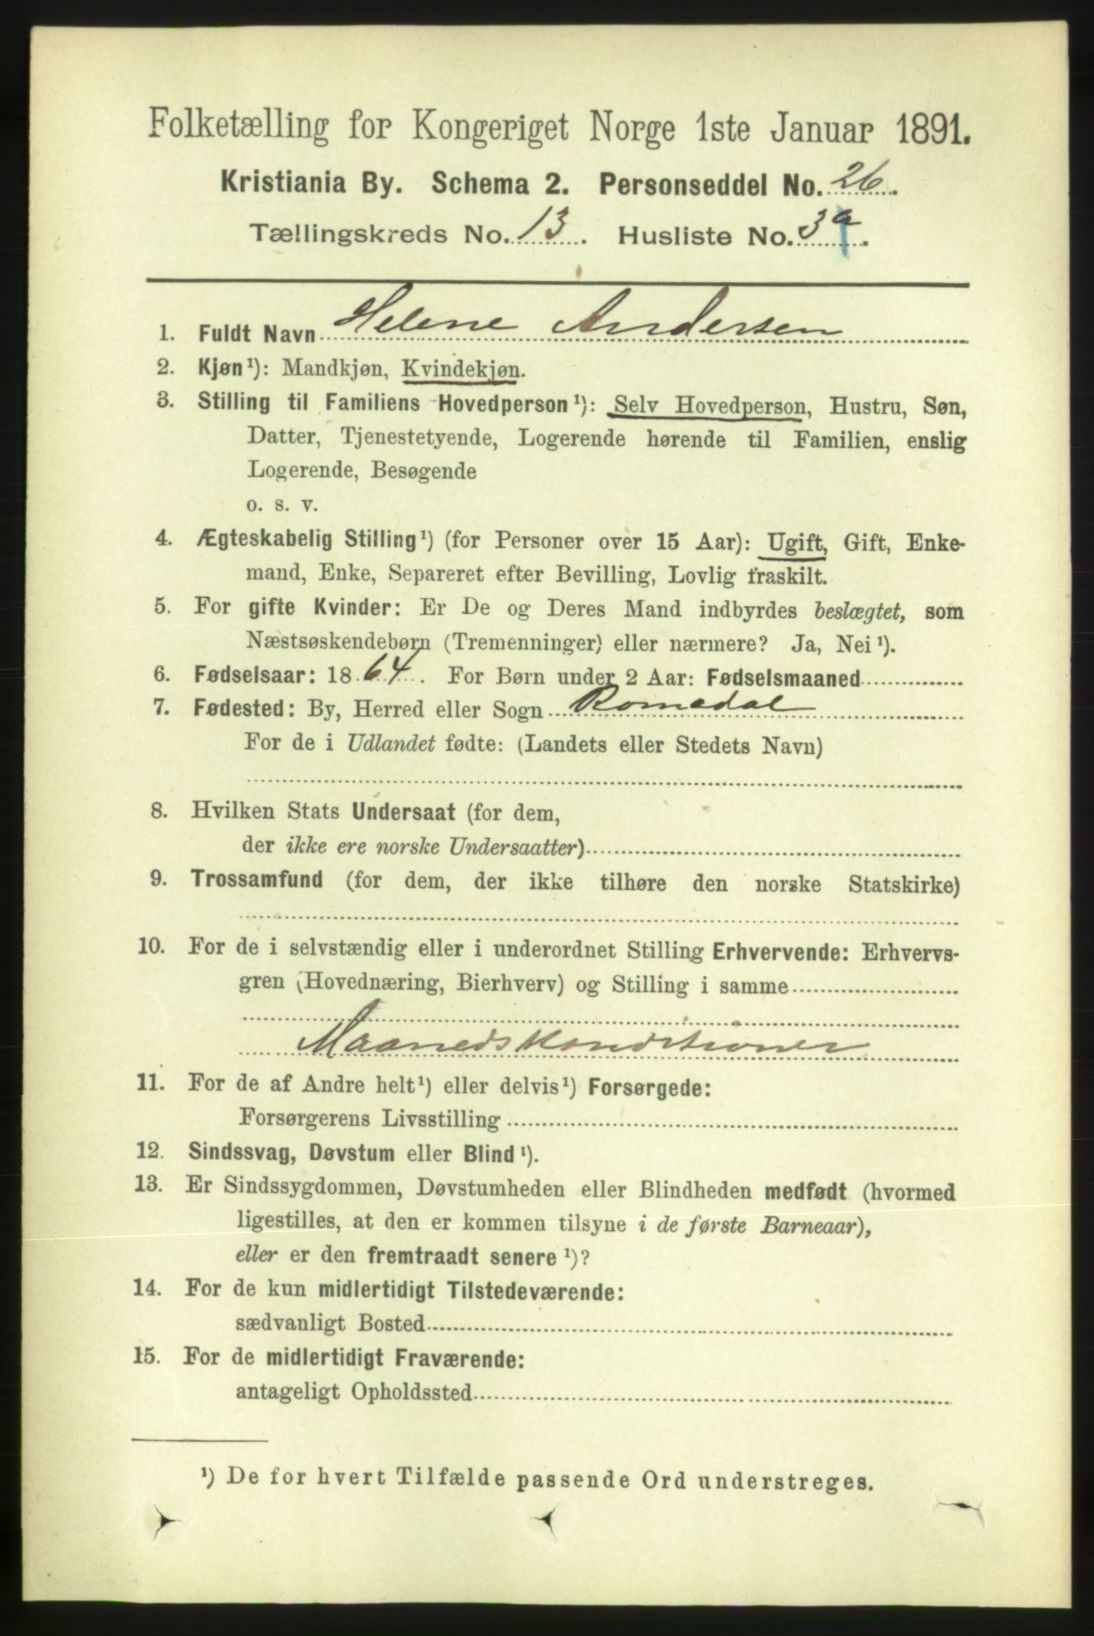 Folketælling for Kongeriget Norge 1ste Januar 1891.
Kristiania By. Schema 2. Personseddel No. 26.
Tællingskreds No. 13. Husliste No. 3a.
1. Fuldt Navn Helene Andersen
2. Kjøn¹): Mandkjøn, Kvindekjøn.
3. Stilling til Familiens Hovedperson¹): Selv Hovedperson, Hustru, Søn,
Datter, Tjenestetyende, Logerende hørende til Familien, enslig
Logerende, Besøgende
o. s. v.
4. Ægteskabelig Stilling¹) (for Personer over 15 Aar): Ugift, Gift, Enke-
mand, Enke, Separeret efter Bevilling, Lovlig fraskilt.
5. For gifte Kvinder: Er De og Deres Mand indbyrdes beslægtet, som
Næstsøskendebørn (Tremenninger) eller nærmere? Ja, Nei¹).
6. Fødselsaar: 1864. For Børn under 2 Aar: Fødselsmaaned
7. Fødested: By, Herred eller Sogn Romedal
For de i Udlandet fødte: (Landets eller Stedets Navn)
8. Hvilken Stats Undersaat (for dem,
der ikke ere norske Undersaatter)
9. Trossamfund (for dem, der ikke tilhøre den norske Statskirke)
10. For de i selvstændig eller i underordnet Stilling Erhvervende: Erhvervs-
gren (Hovednæring, Bierhverv) og Stilling i samme
Maanedskonditioner
11. For de af Andre helt¹) eller delvis¹) Forsørgede:
Forsørgerens Livsstilling
12. Sindssvag, Døvstum eller Blind¹).
13. Er Sindssygdommen, Døvstumheden eller Blindheden medfødt (hvormed
ligestilles, at den er kommen tilsyne i de første Barneaar),
eller er den fremtraadt senere¹)?
14. For de kun midlertidigt Tilstedeværende:
sædvanligt Bosted
15. For de midlertidigt Fraværende:
antageligt Opholdssted
¹) De for hvert Tilfælde passende Ord understreges.